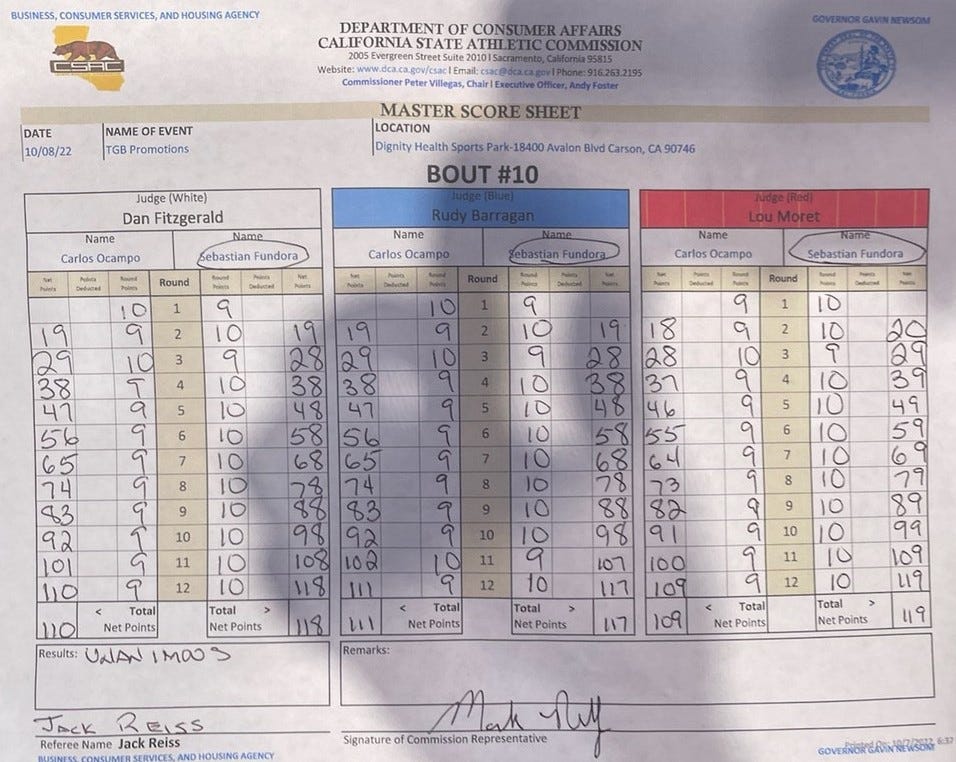 BUSINESS, CONSUMER SERVICES, AND HOUSING AGENCY
GOVERNOR GAVIN NEWSOM
CSAC
DEPARTMENT OF CONSUMER AFFAIRS
CALIFORNIA STATE ATHLETIC COMMISSION
2005 Evergreen Street Suite 2010 | Sacramento, California 95815
Website: www.dca.ca.gov/csac | Email: csac@dca.ca.gov | Phone: 916.263.2195
Commissioner Peter Villegas, Chair | Executive Officer, Andy Foster
MASTER SCORE SHEET
DATE NAME OF EVENT LOCATION
10/08/22 TGB Promotions Dignity Health Sports Park-18400 Avalon Blvd Carson, CA 90746
BOUT #10
Judge (White) Judge (Blue) Judge (Red)
Dan Fitzgerald Rudy Barragan Lou Moret
Name Name Name Name Name Name
Carlos Ocampo Sebastian Fundora Carlos Ocampo Sebastian Fundora Carlos Ocampo Sebastian Fundora
Net Points Points Deducted Round Points Round Round Points Points Deducted Net Points Net Points Points Deducted Round Points Round Round Points Points Deducted Net Points Net Points Points Deducted Round Points Round Round Points Points Deducted Net Points
10 1 9 10 1 9 9 1 10
19 9 2 10 19 19 9 2 10 19 18 9 2 10 20
29 10 3 9 28 29 10 3 9 28 28 10 3 9 29
38 9 4 10 38 38 9 4 10 38 37 9 4 10 39
47 9 5 10 48 47 9 5 10 48 46 9 5 10 49
56 9 6 10 58 56 9 6 10 58 55 9 6 10 59
65 9 7 10 68 65 9 7 10 68 64 9 7 10 69
74 9 8 10 78 74 9 8 10 78 73 9 8 10 79
83 9 9 10 88 83 9 9 10 88 82 9 9 10 89
92 9 10 10 98 92 9 10 10 98 91 9 10 10 99
101 9 11 10 108 102 10 11 9 107 100 9 11 10 109
110 9 12 10 118 111 9 12 10 117 109 9 12 10 119
110 < Total Net Points Total > Net Points 118 111 < Total Net Points Total > Net Points 117 109 < Total Net Points Total > Net Points 119
Results: UNANIMOUS
Remarks:
JACK REISS
Referee Name Jack Reiss
Signature of Commission Representative
Printed On: 10/7/2022, 6:37
BUSINESS, CONSUMER SERVICES, AND HOUSING AGENCY
GOVERNOR GAVIN NEWSOM